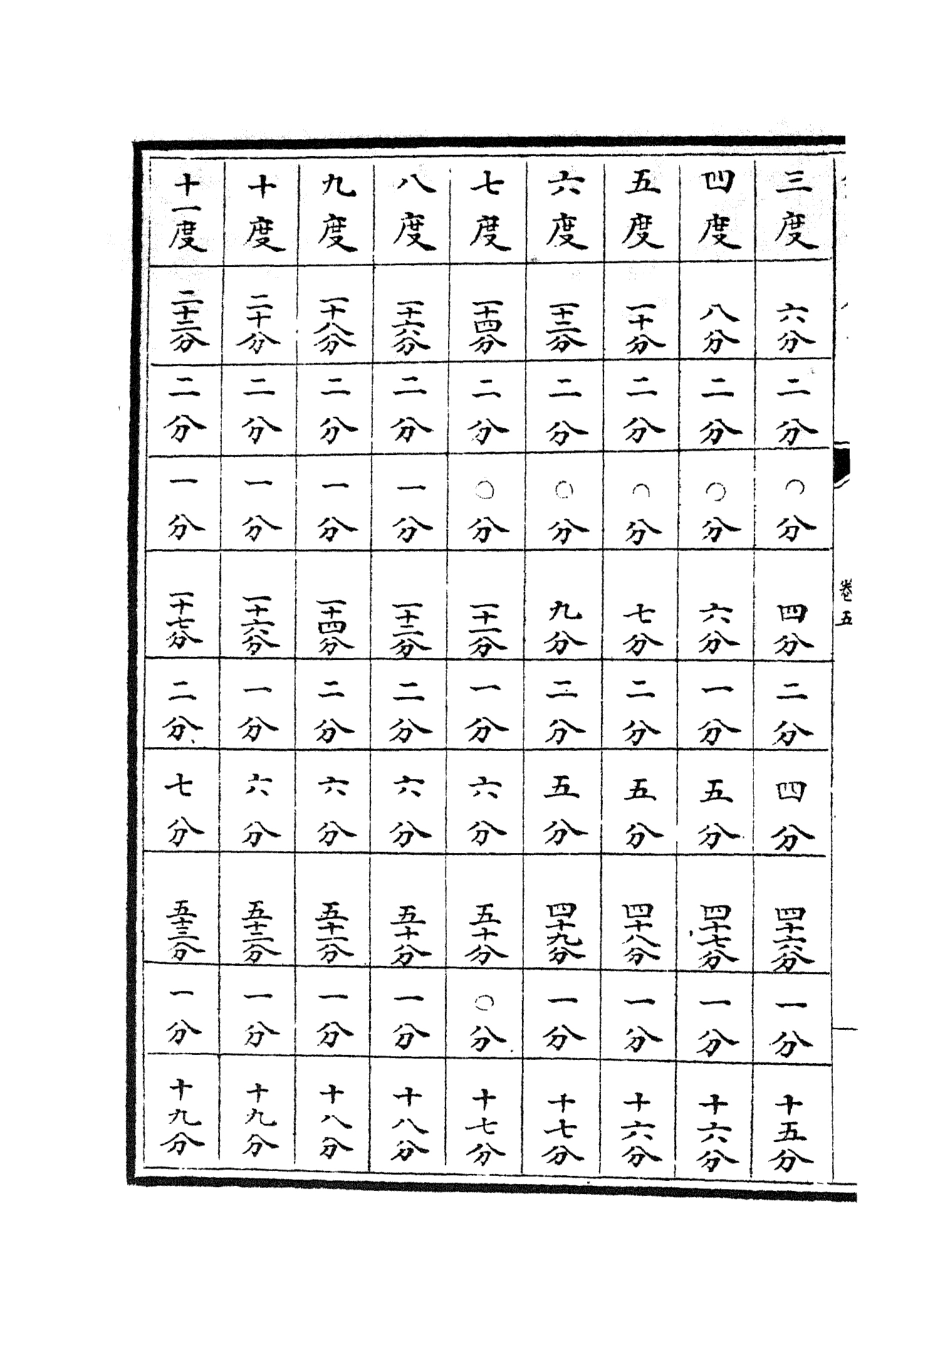 卷五
三度 六分 二分 〇分 四分 二分 四分 四十六分 一分 十五分
四度 八分 二分 〇分 六分 一分 五分 四十七分 一分 十六分
五度 一十分 二分 〇分 七分 二分 五分 四十八分 一分 十六分
六度 一十二分 二分 〇分 九分 二分 五分 四十九分 一分 十七分
七度 一十四分 二分 〇分 一十一分 一分 六分 五十分 〇分 十七分
八度 一十六分 二分 一分 一十二分 二分 六分 五十分 一分 十八分
九度 一十八分 二分 一分 一十四分 二分 六分 五十一分 一分 十八分
十度 二十分 二分 一分 一十六分 一分 六分 五十二分 一分 十九分
十一度 二十二分 二分 一分 一十七分 二分 七分 五十三分 一分 十九分